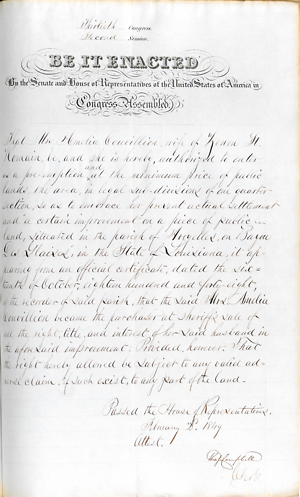 Thirtieth Congress
Second Session
BE IT ENACTED
By the Senate and House of Representatives of the United States of America in
Congress Assembled,
That Mrs Amelia Couvillion wife of Zenon St.
Romain be, and she is hereby, authorized to enter
as a pre-emption and at the minimum price of public
lands, the area, in legal sub-divisions of one quarter
section, so as to embrace her present actual settlement
and a certain improvement on a piece of public
land, situated in the parish of Avoyelles, on Bayou
Des Glaises, in the State of Louisiana, it ap-
pearing from an official certificate, dated the Six-
teenth of October, eighteen hundred and forty-eight,
of the recorder of said parish, that the said Mrs. Amelia
Couvillion became the purchaser at Sheriff's sale of
all the right, title, and interest of her said husband in
the aforesaid improvement: Provided, however, That
the right hereby allowed be subject to any valid ad-
verse claim, if such exist, to any part of the land.
Passed the House of Representatives,
February 2d. 1849
Attest.
Campbell
Clerk